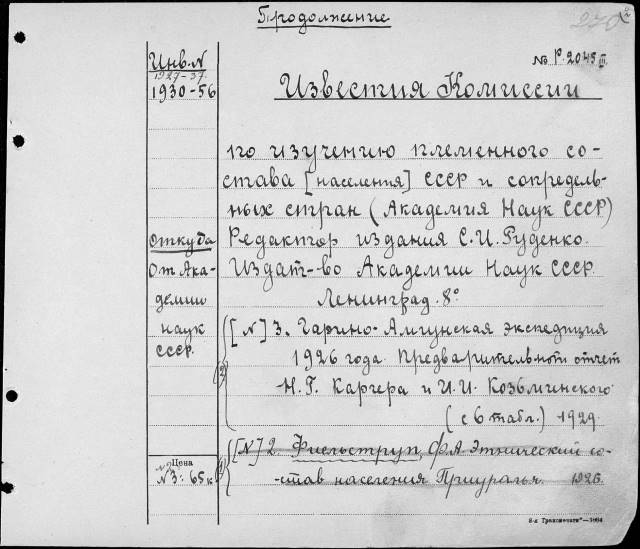 Продолжение
Инв. N
1927-37.
1930-56
№ Р. 2045 III.
Известия Комиссии
по изучению племенного со-
става [населения] СССР и сопредель-
ных стран (Академия Наук СССР)
Откуда
От Ака-
демии
наук
СССР.
Редактор издания С.И. Руденко.
Издат-во Академии Наук СССР
Ленинград. 8º
[N] 3. Гарино-Амгунская экспедиция
1926 года. Предварительный отчет
Н.Г. Каргера и И.И. Козьминского
(с 6 табл.) 1929.
[N] 2. Фиельструп, Ф.А. Этнический со-
став населения Приуралья. 1926.
Цена
№ 3: 65 к